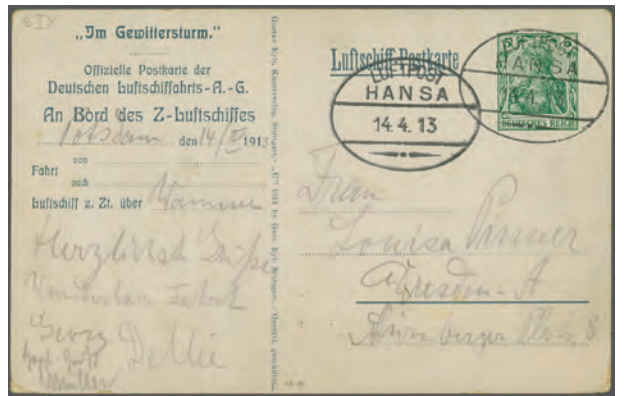 „Im Gewittersturm."
Offizielle Postkarte der
Deutschen Luftschiffahrts-A.-G.
An Bord des Z-Luftschiffes
Potsdam den 14/IV 1913
von
Fahrt
nach
Luftschiff z. Zt. über Wannsee
Herzlichst Grüße
Wunderbare Fahrt
Georg Dellie
Müller
Luftschiff-Postkarte
LUFTPOST
HANSA
14.4.13
LUFTPOST
HANSA
DEUTSCHES REICH
Frau
Louisa Pinner
Dresden-A
Nürnberger Platz 8